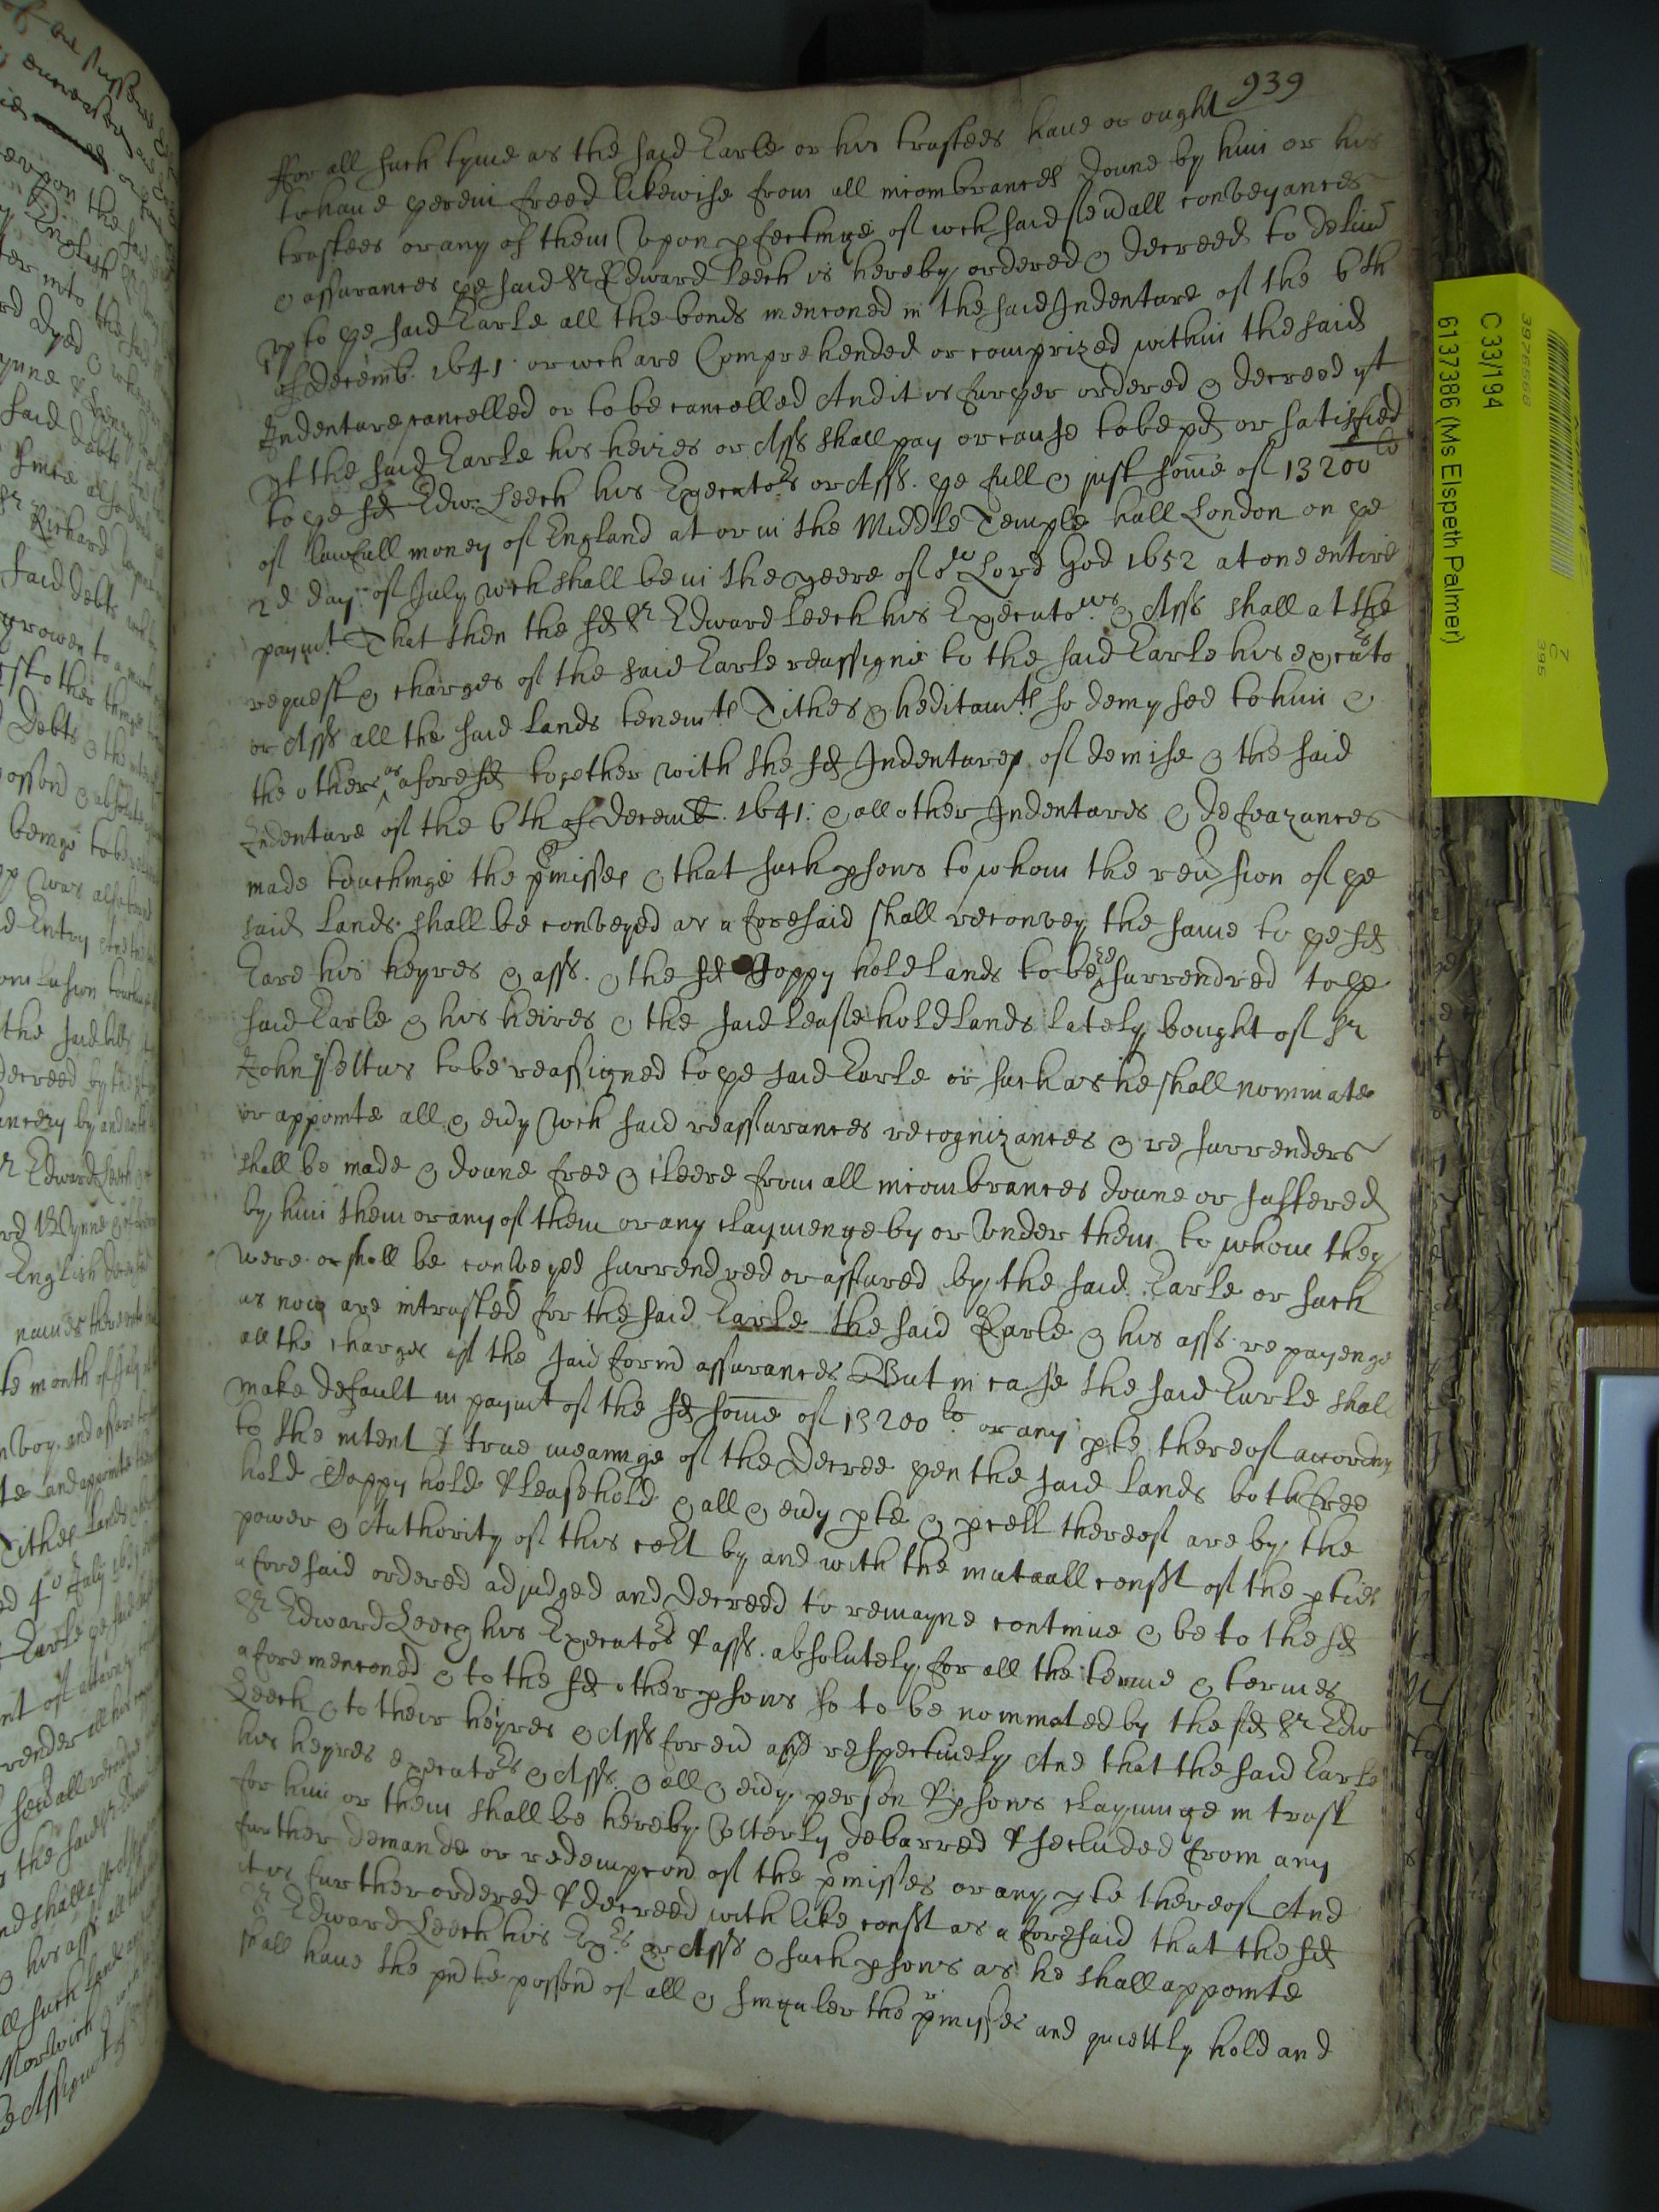 939
ffor all such tyme as the said Earle or his trustees haue or ought
to haue yerein freed likewise from all incombrances donne by him or his
trustees or any of them Vpon pfectinge of wch said seuall conveyances
& assurances ye said Sr Edward Leech is hereby ordered & decreed to deliur
vp to ye said Earle all the bonds menconed in the said Indenture of the 6th
of decemb. 1641. or wch are Comprehended or comprized within the said
Indenture cancelled or to be cancelled And it is further ordered & decreed yt
yf the said Earle his heires or Asss shall pay or cause to be pd or satisfied
to ye sd Edw: Leech his Executors or Asss. ye full & just some of 13200li
of lawfull money of England at or in the Middle Temple hall London on ye
2d day of July wch shall be in the yeere of or Lord God 1652 at one entire
paymt That then the sd Sr Edward Leech his Executors & Asss shall at the
request & charges of the said Earle reassigne to the said Earle his executors
or Asss all the said lands tenemts Tithes & heditamts so demysed to him &
the others as aforesd together with the sd Indentures of demise & the said
Indenture of the 6th of decemb. 1641: & all other Indentures & defeazances
made touchinge the pmisses & that such psons to whom the reusion of ye
said Lands shall be conveyed as aforesaid shall reconvey the same to ye sd
Eare his heyres & asss. & the sd Coppy hold lands to be re surrendred to ye
said Earle & his heires & the said leasehold lands lately bought of Sr
John to be reassigned to ye said Earle or such as he shall nominate
or appointe all & euy wch said reassurances recognizances & re surrenders
shall be made & donne free & cleere from all incombrances donne or suffered
by him them or any of them or any claymenge by or Vnder them to whom they
were or shall be conveyed surrendred or assured by the said Earle or such
as now are intrusted for the said Earle the said Earle & his asss repayenge
all the charges of the said formd assurances But in case the said Earle shall
make default in paymt of the sd some of 13200li or any pte thereof accordinge
to the intent & true meaninge of the Decree yen the said lands both free
hold Coppy hold & Leasehold & all & euy pte & pcell thereof are by the
power & Authority of this cort by and with the mutuall consst of the pties
aforesaid ordered adjudged and decreed to remayne continue & be to the sd
Sr Edward Leech his Executors & asss. absolutely for all the terme & termes
aforemenconed & to the sd other psons so to be nominated by the sd Sr Edw
Leech & to their heyres & Asss foreu and respectiuely And that the said Earle
his heyres executors & Asss. & all & euy person & psons clayminge in trust
for him or them shall be hereby Vtterly debarred & secluded from any
further demande or redempcon of the pmisses or any pte thereof And
it is further ordered & decreed with like consst as aforesaid that the sd
Sr Edward Leech his Exrs or Asss & such psons as he shall appointe
shall haue the pnte possion of all & singuler the pmisses and quiettly hold and
C 33/194
6137386 (Ms Elspeth Palmer)